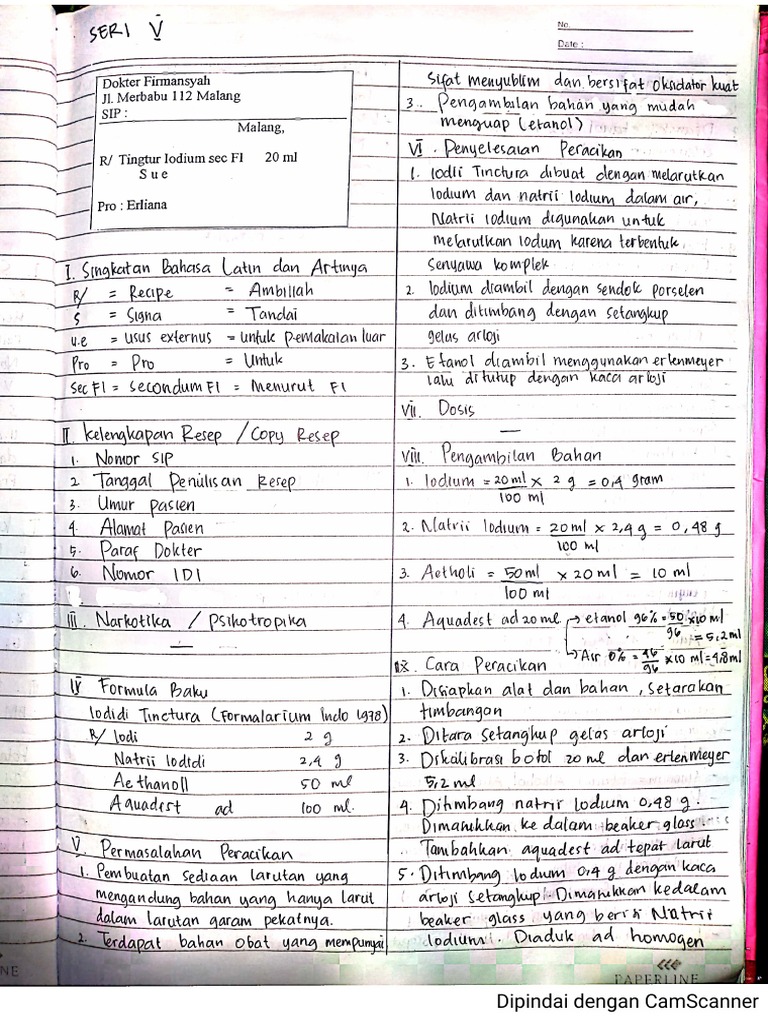 SERI V
No.
Date :
Dokter Firmansyah
Jl. Merbabu 112 Malang
SIP :
Malang,
R/ Tingtur Iodium sec FI 20 ml
S u e
Pro : Erliana
I. Singkatan Bahasa Latin dan Artinya
R/ = Recipe = Ambillah
S = Signa = Tandai
u.e = usus externus = untuk pemakaian luar
Pro = Pro = Untuk
sec FI = secondum FI = Menurut FI
II. Kelengkapan Resep / Copy Resep
1. Nomor SIP
2. Tanggal Penulisan Resep
3. Umur pasien
4. Alamat Pasien
5. Paraf Dokter
6. Nomor IDI
III. Narkotika / Psikotropika
—
IV Formula Baku
Iodidi Tinctura (Formalarium Indo 1978)
R/ Iodi 2 g
Natrii Iodidi 2,4 g
Aethanoll 50 ml
Aquadest ad 100 ml.
V. Permasalahan Peracikan
1. Pembuatan sediaan larutan yang
mengandung bahan yang hanya larut
dalam larutan garam pekatnya.
2. Terdapat bahan obat yang mempunyai
sifat menyublim dan bersifat oksidator kuat
3. Pengambilan bahan yang mudah
menguap (etanol)
VI. Penyelesaian Peracikan
1. Iodii Tinctura dibuat dengan melarutkan
Iodium dan natrii Iodium dalam air,
Natrii Iodium digunakan untuk
melarutkan Iodum karena terbentuk
senyawa komplek
2. Iodium diambil dengan sendok porselen
dan ditimbang dengan setangkup
gelas arloji
3. Etanol diambil menggunakan erlenmeyer
lalu ditutup dengan kaca arloji
VII. Dosis
—
VIII. Pengambilan Bahan
1. Iodium = 20 ml / 100 ml × 2 g = 0,4 gram
2. Natrii Iodium = 20 ml / 100 ml × 2,4 g = 0,48 g
3. Aetholi = 50 ml / 100 ml × 20 ml = 10 ml
4. Aquadest ad 20 ml → etanol 96% = 50 / 96 × 10 ml
= 5,2 ml
→ Air 0% = 46 / 96 × 10 ml = 4,8 ml
IX. Cara Peracikan
1. Disiapkan alat dan bahan, setarakan
timbangan
2. Ditara setangkup gelas arloji
3. Dikalibrasi botol 20 ml dan erlenmeyer
5,2 ml
4. Ditimbang natrii Iodium 0,48 g.
Dimasukkan ke dalam beaker glass.
Tambahkan aquadest ad tepat larut
5. Ditimbang Iodum 0,4 g dengan kaca
arloji setangkup. Dimasukkan kedalam
beaker glass yang berisi Natrii
Iodium. Diaduk ad homogen
NE
PAPERLINE
Dipindai dengan CamScanner